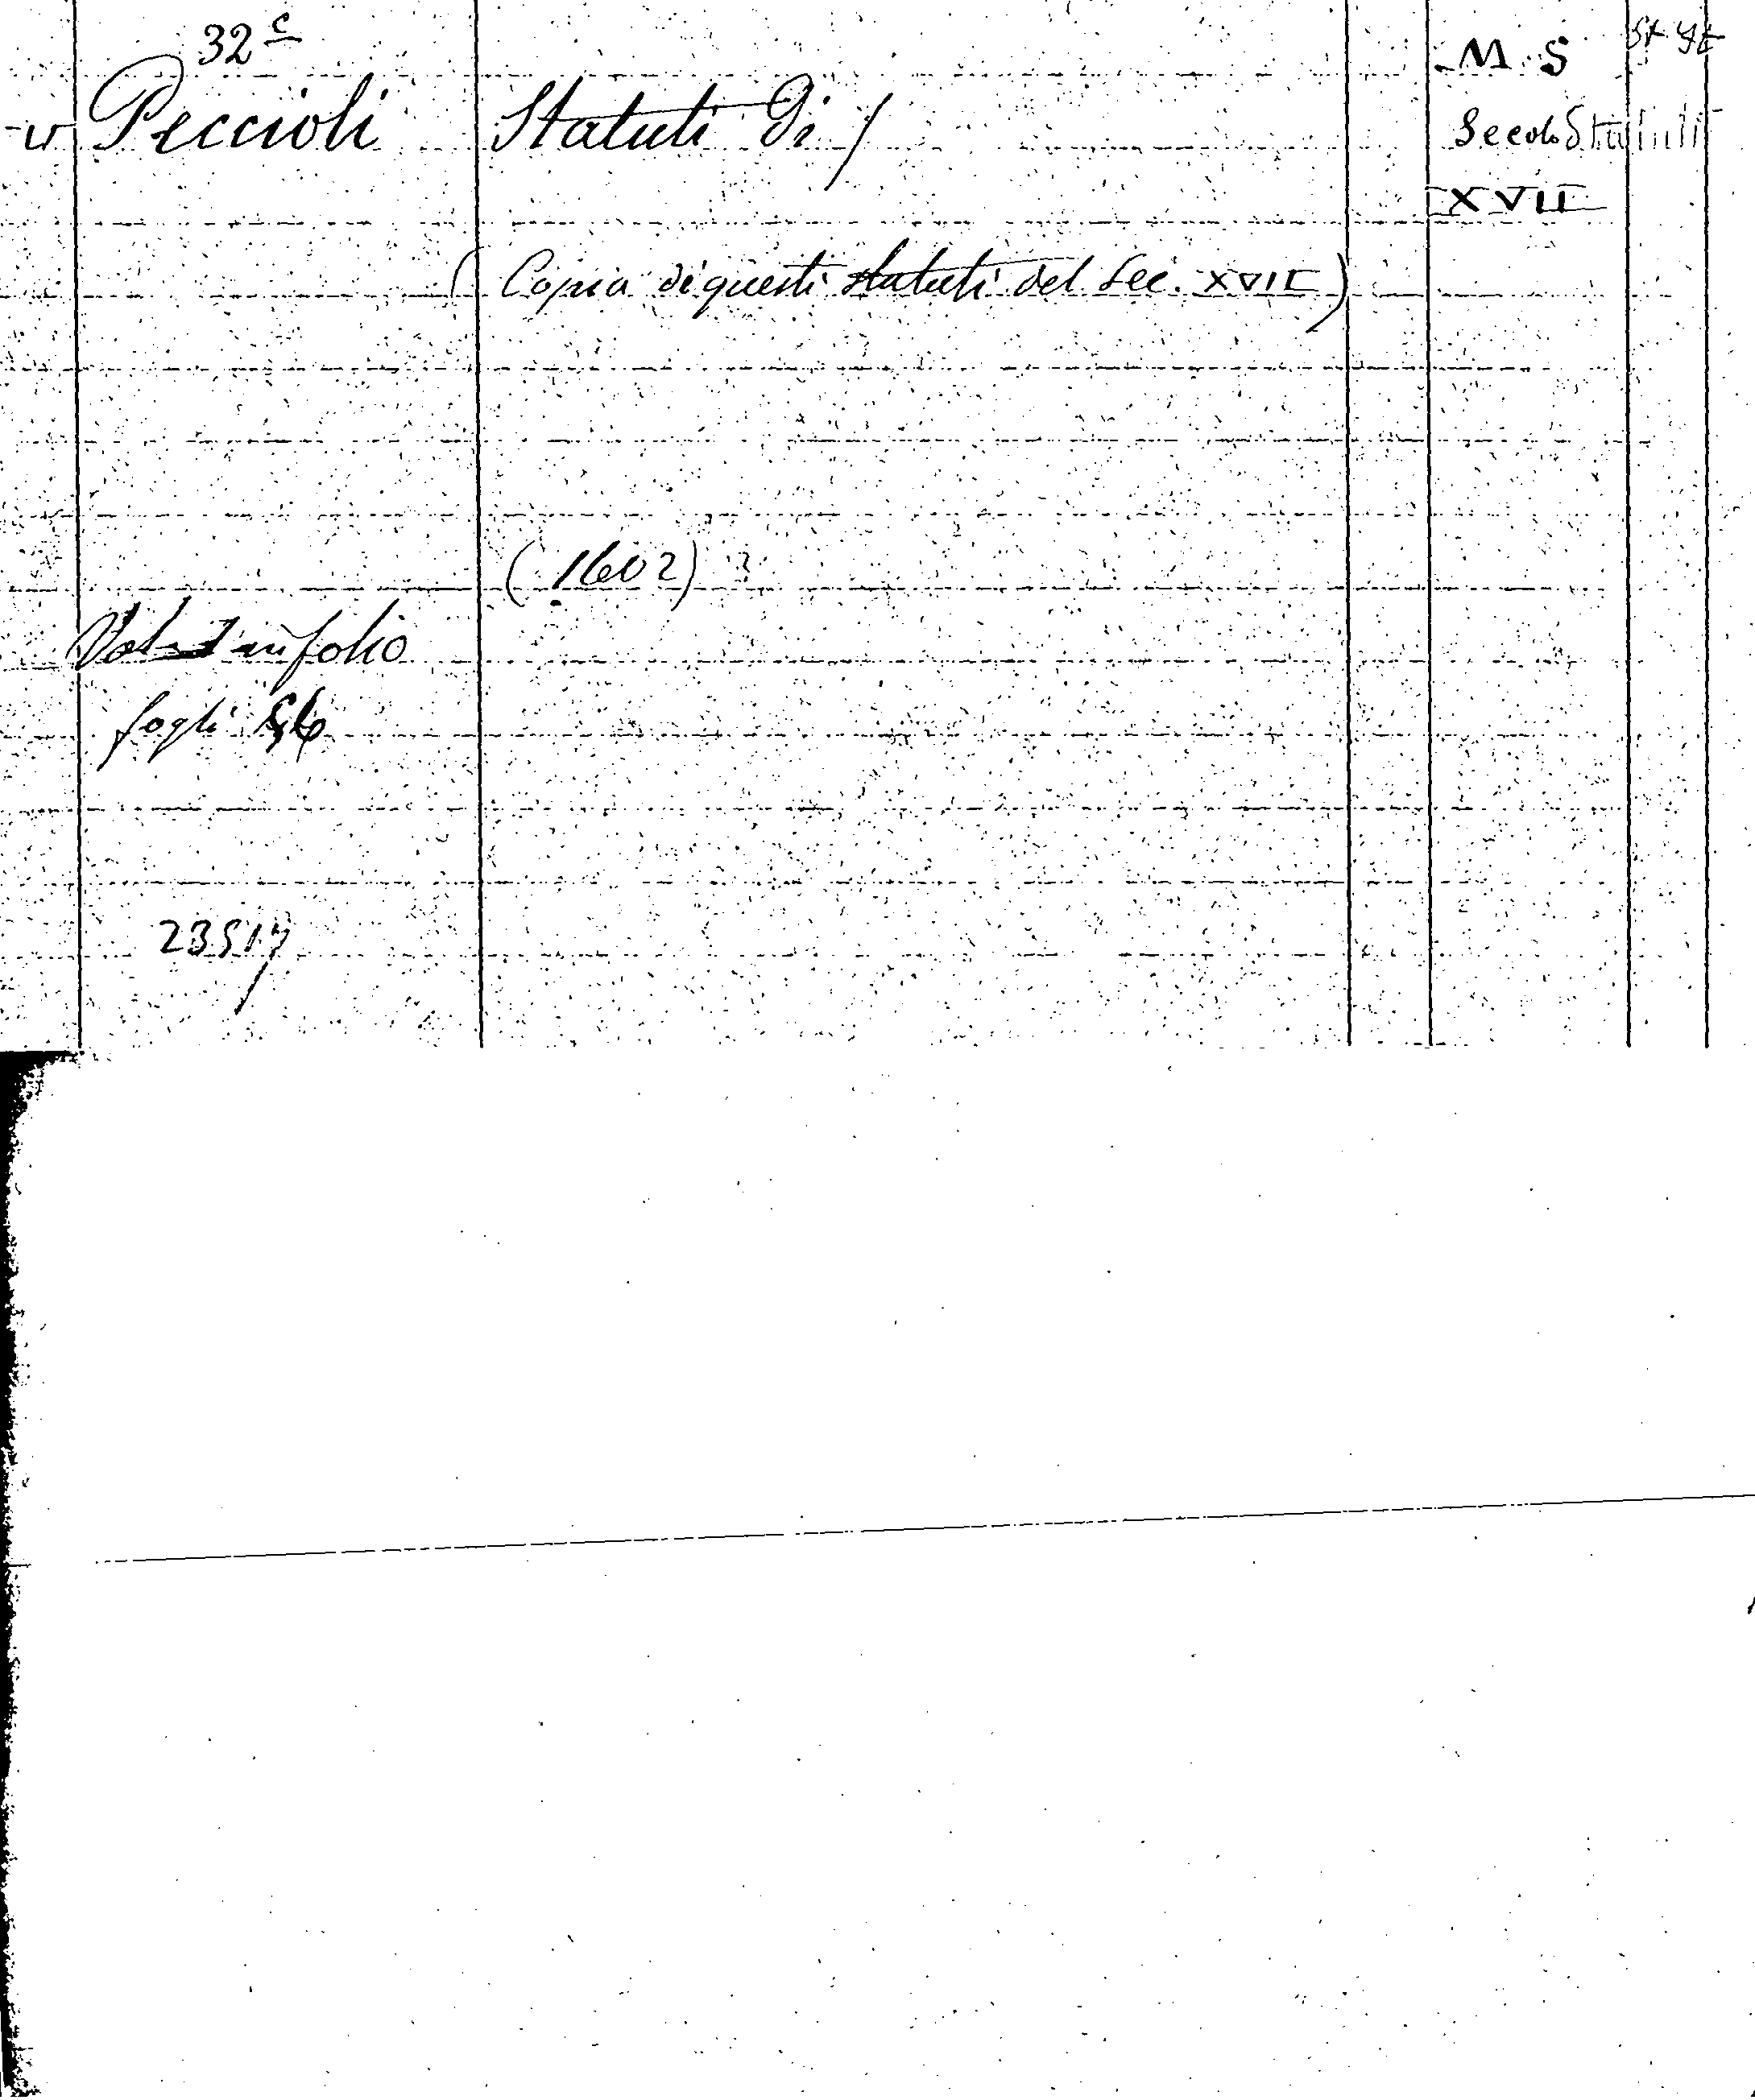 32c M. S
v Peccioli Statuti di / Secolo Statuti
XVII
( Copia di questi statuti del Sec. XVII )
(1602) ?
Vol. in folio
fogli
23517